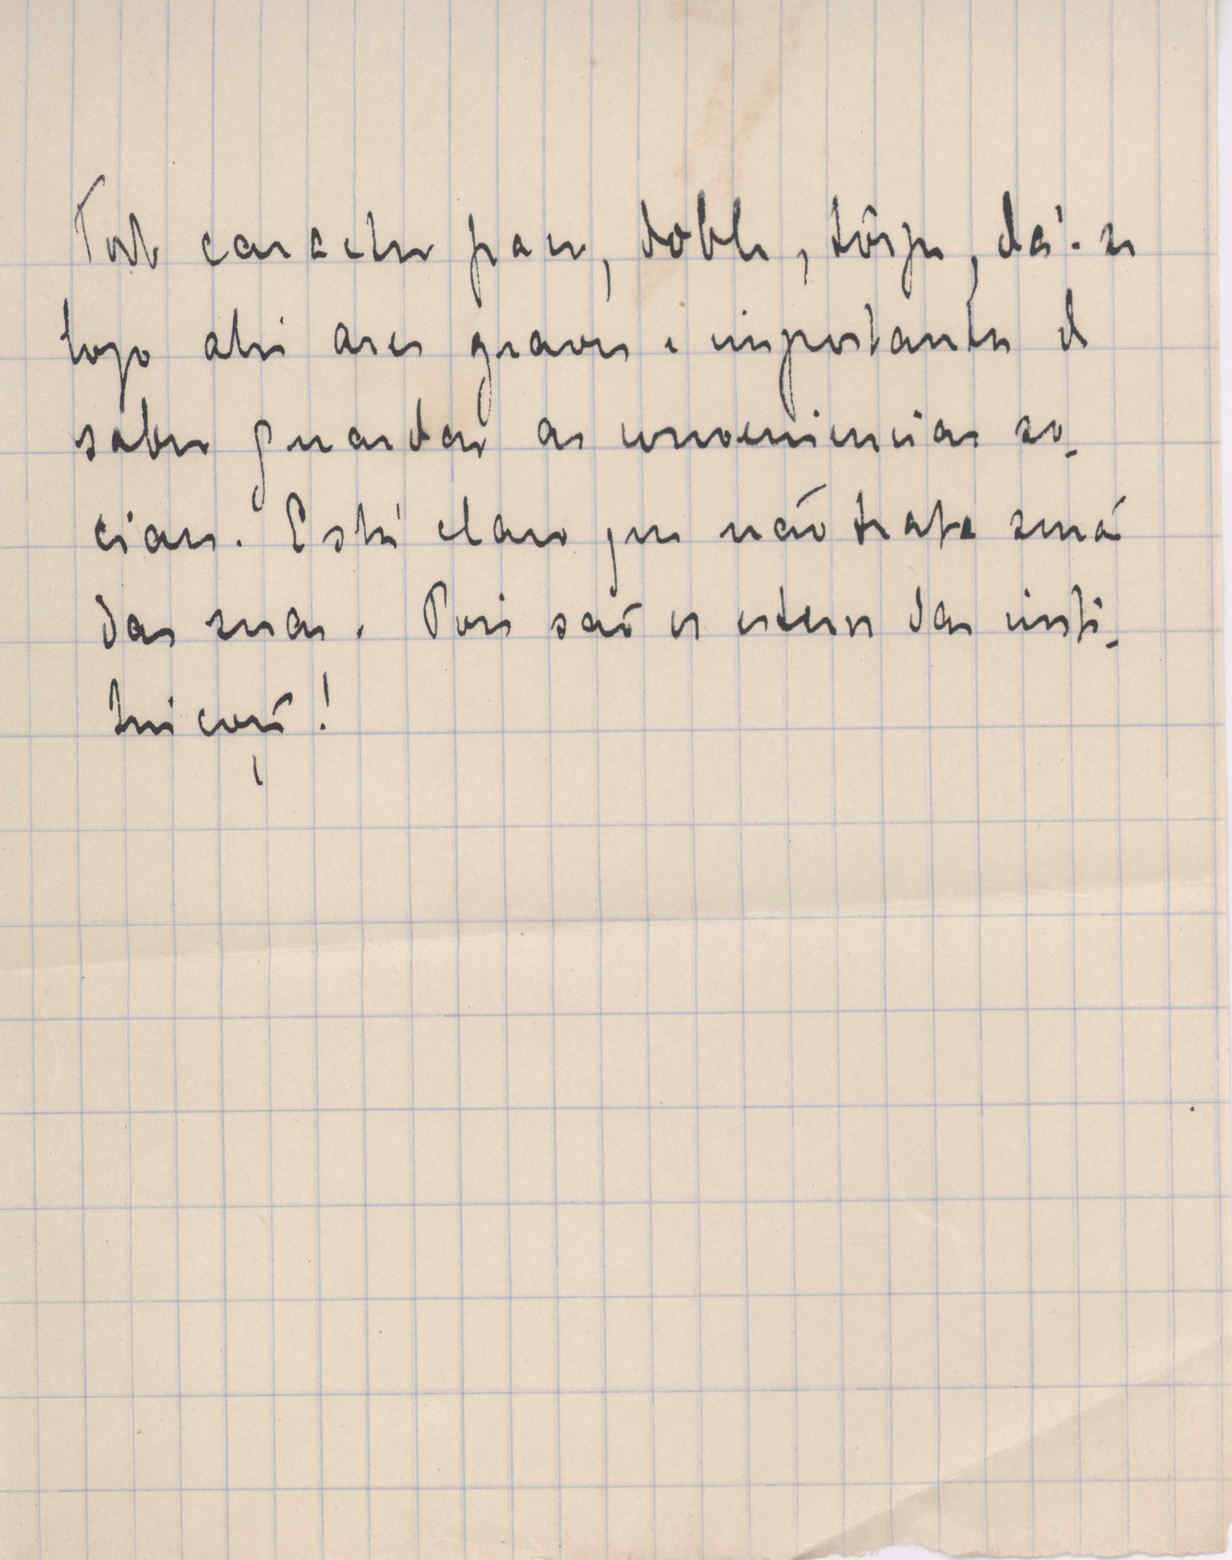 Todo caracter fraco, doble, tôrpe, dá-se
logo ahi ares graves e importantes de
saber guardar as conveniencias so-
ciaes. Está claro que não trata senão
das suas. Pois são os esteios das insti-
tuições!